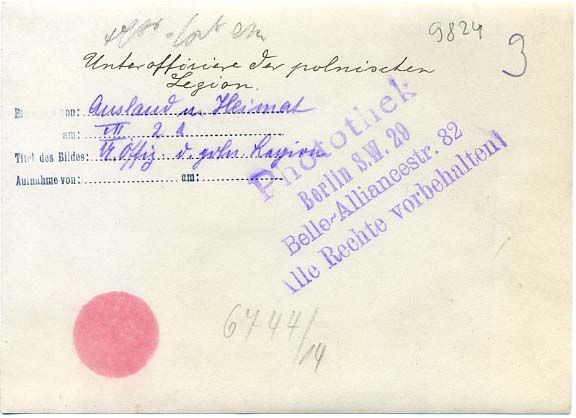 9824
3
Unteroffiziere der polnischen
Legion.
von: Ausland u. Heimat
am: VII 21
Titel des Bildes: U. Offiz d. poln. Legion
Aufnahme von: am:
Photothek
Berlin S.W. 29
Belle-Alliancestr. 82
Alle Rechte vorbehalten!
6744/14